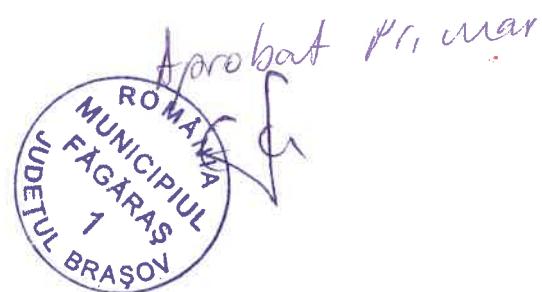 Aprobat Primar
ROMÂNIA
MUNICIPIUL
FĂGĂRAȘ
1
JUDEȚUL BRAȘOV